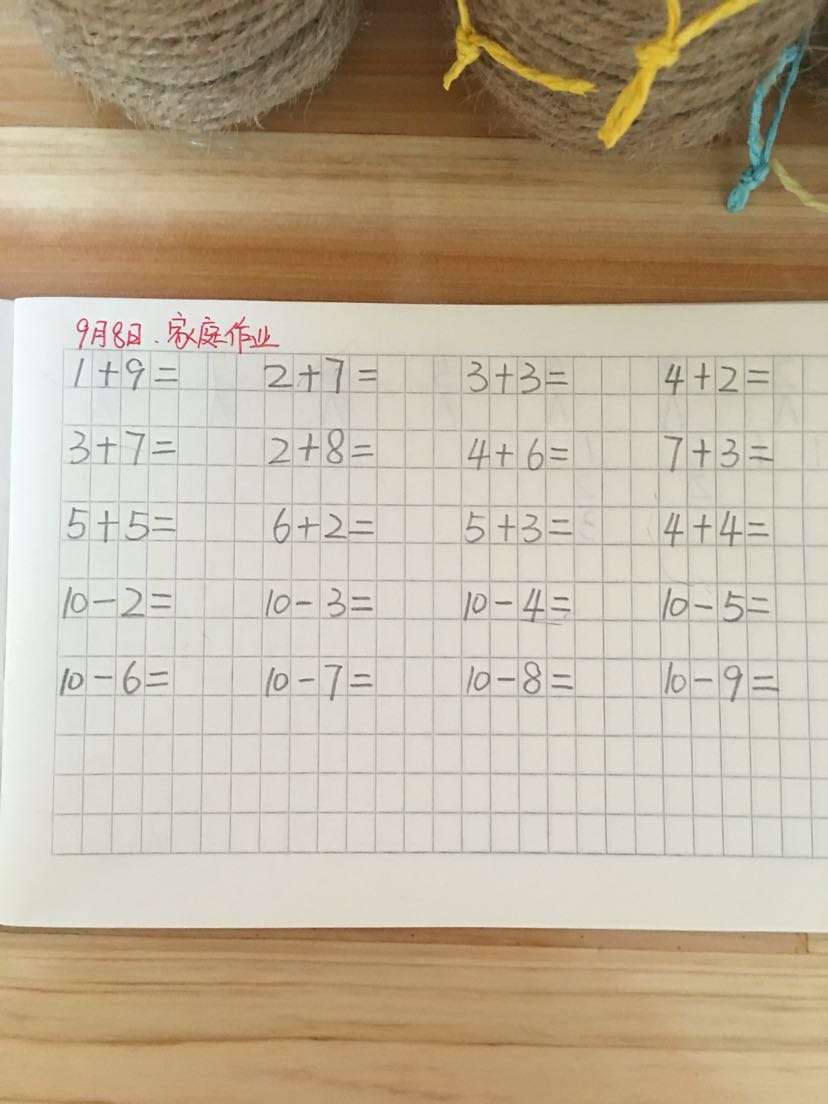 9月8日.家庭作业
1+9= 2+7= 3+3= 4+2=
3+7= 2+8= 4+6= 7+3=
5+5= 6+2= 5+3= 4+4=
10-2= 10-3= 10-4= 10-5=
10-6= 10-7= 10-8= 10-9=